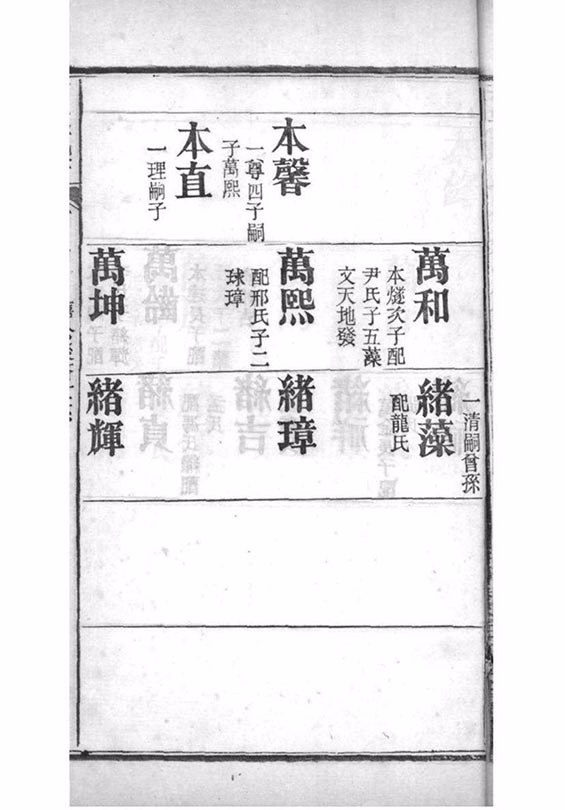 本馨
一尊四子嗣
子萬熙
本直
一理嗣子
萬和
本燧次子配
尹氏子五藻
文天地發
萬熙
配邢氏子二
球璋
萬坤
一清嗣曾孫
緒藻
配龍氏
緒璋
緒輝